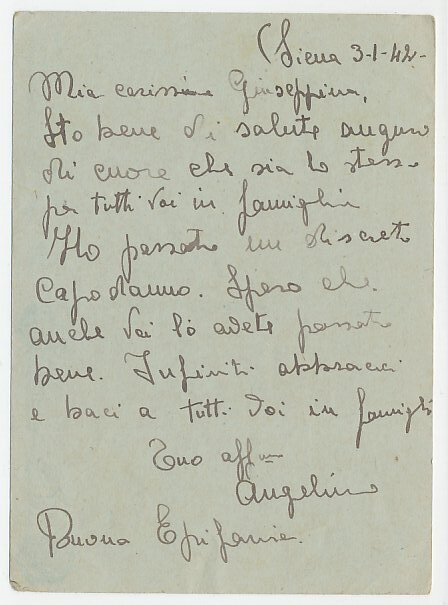 (Siena 3-1-42-
Mia carissima Giuseppina,
Sto bene di salute auguro
di cuore che sia lo stesso
per tutti voi in famiglia
Ho passato un discreto
Capodanno. Spero che
anche voi lo avete passato
bene. Infiniti abbracci
e baci a tutti voi in famiglia
Tuo aff.mo
Angelino
Buona Epifania.